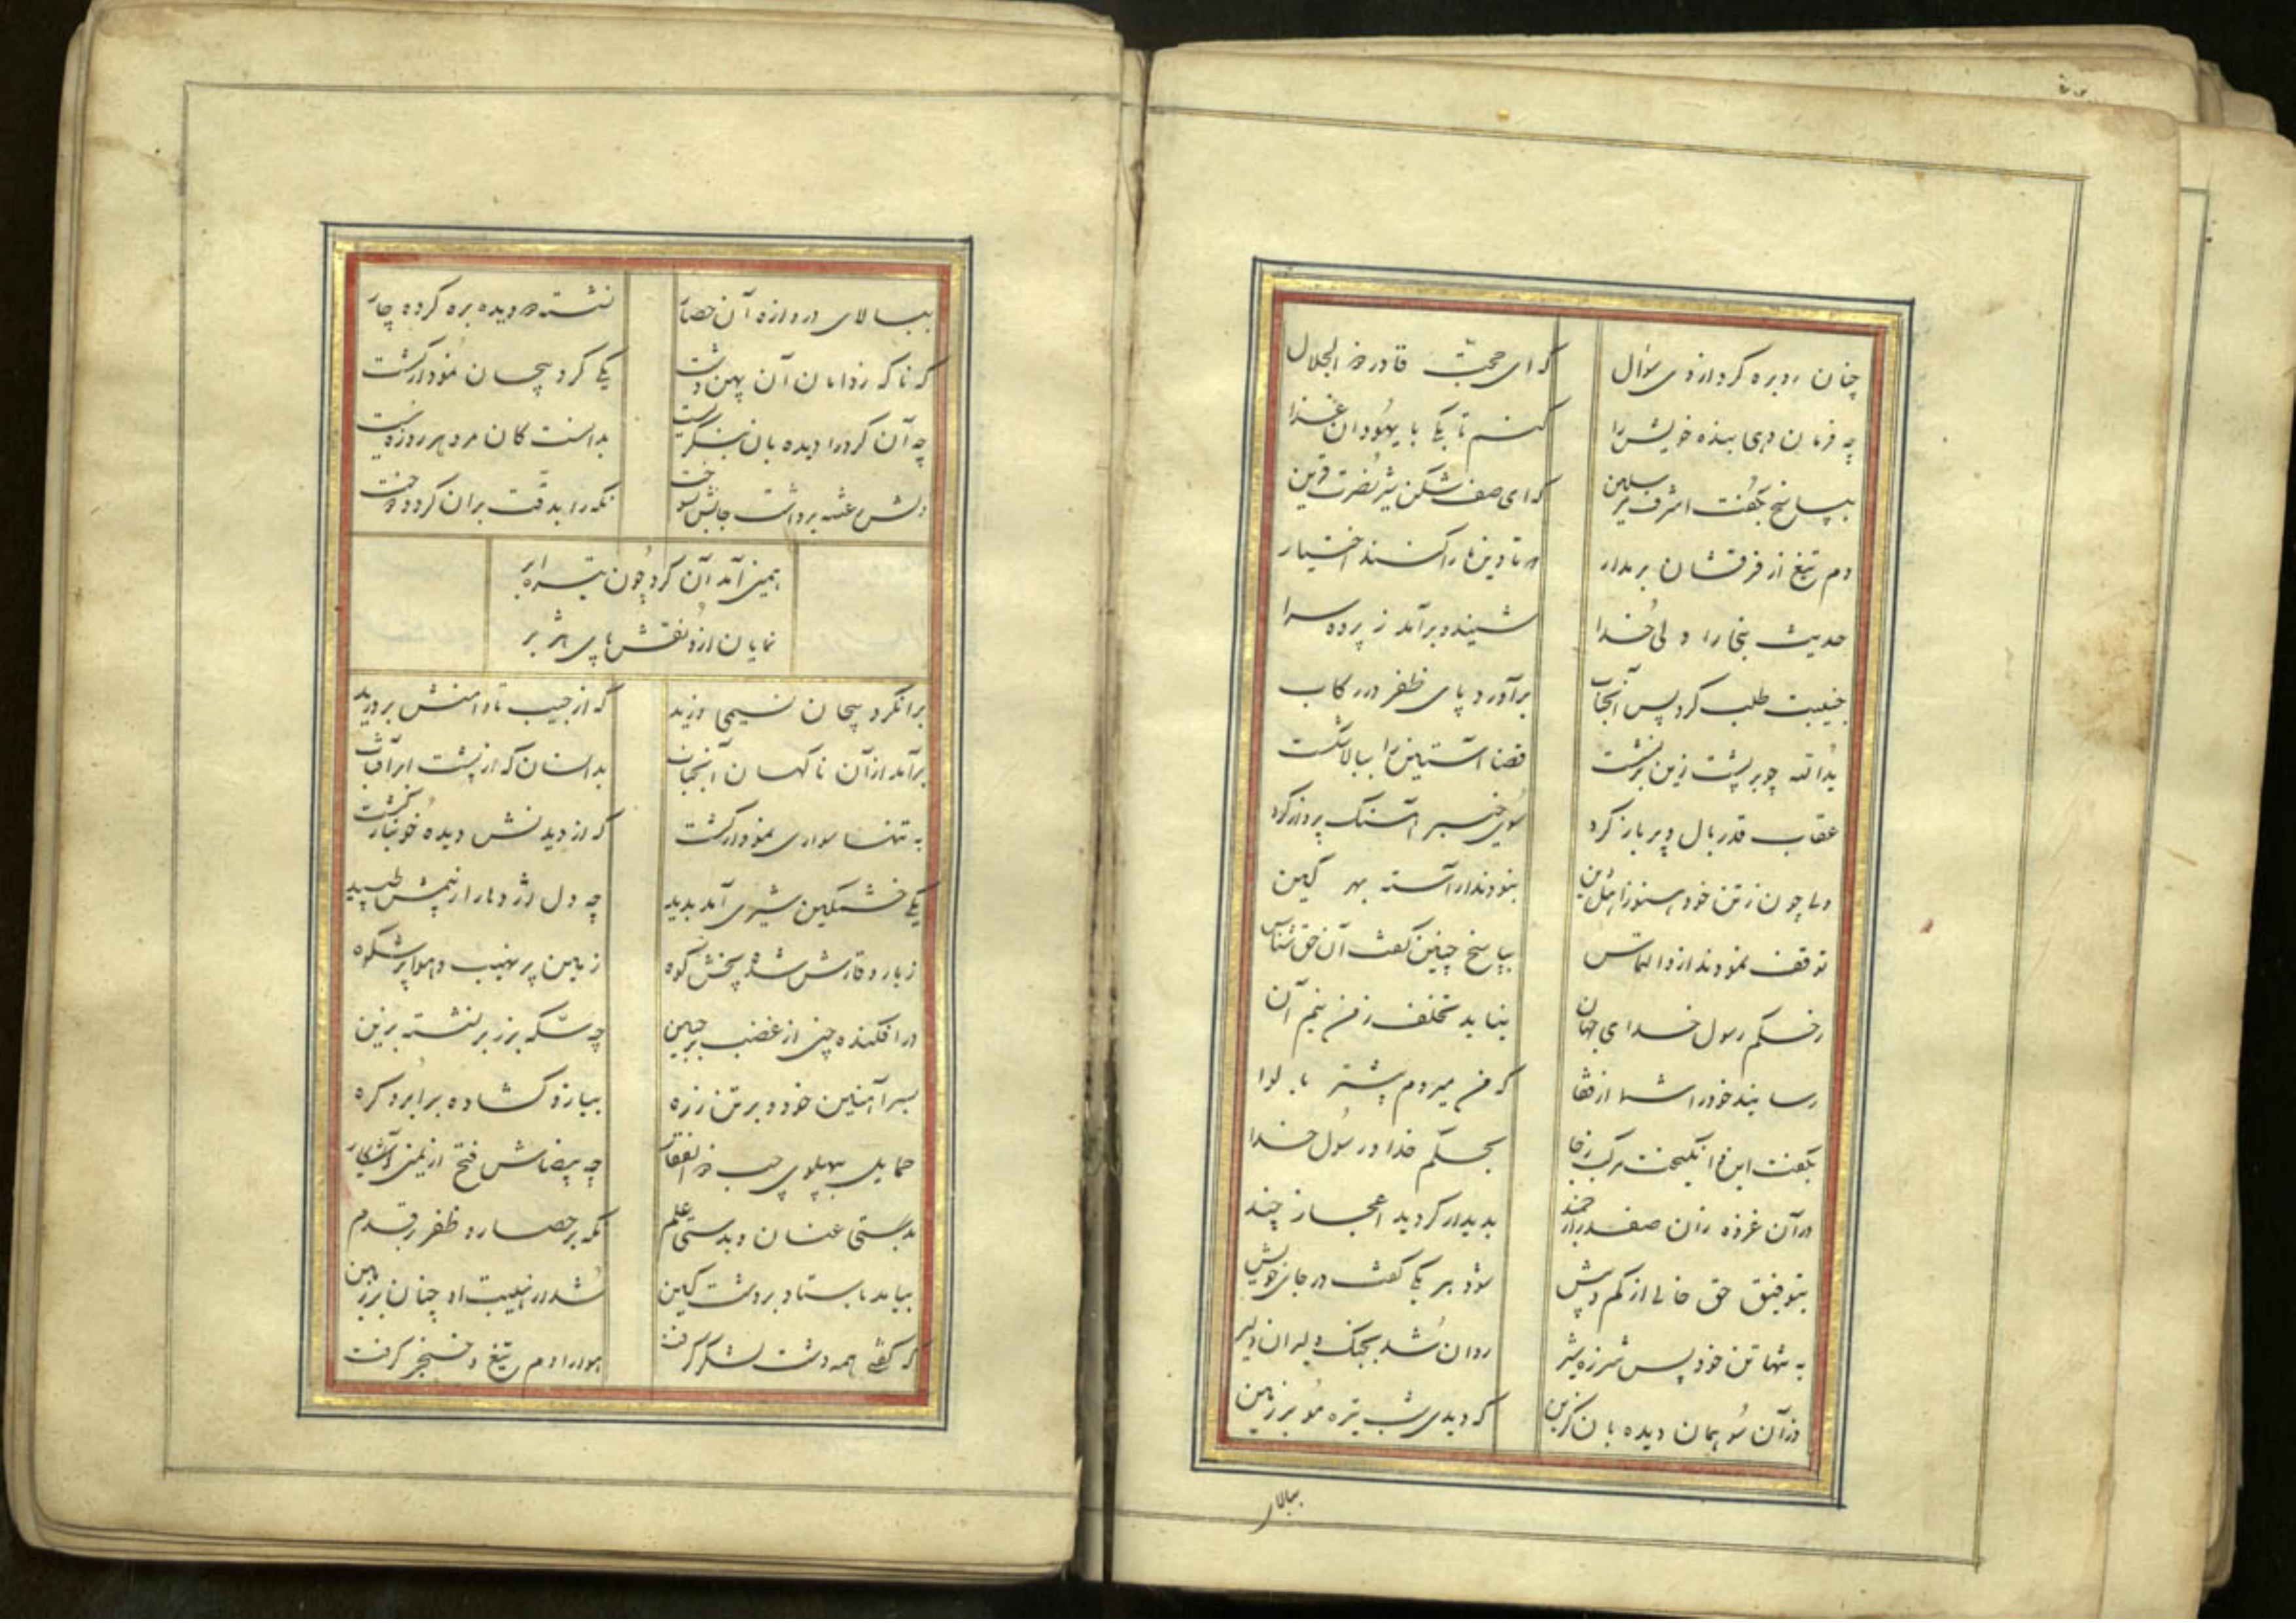 چنان رو بره کرد ازوی سؤال که ای حجت قادر ذو الجلال
چه فرمان دهی بنده خویش را کنم تا یکی با یهودان غزا
بپاسخ بگفت اشرف مرسلین که ای صف شکن شیر نصرت قرین
دم تیغ از فرقشان بر مدار تا دین ما را کنند اختیار
حدیث نبی را ولی خدا شنید و برآمد ز پرده سرا
جنیبت طلب کرد پس آنجناب برآورد پای ظفر در رکاب
یدالله چو بر پشت زین بر نشست قضا آستین را ببالا شکست
عقاب قدر بال و پر باز کرد سوی خیبر آهنگ پرواز کرد
ولی چون ز تن خود هنوز اهل دین نبودند آراسته بهر کین
توقف نمودند ازو التماس بپاسخ چنین گفت آن حق شناس
ز حکم رسول خدای جهان نیاید تخلف ز من نیم آن
رسانید خود را شما از قفا که من میروم پیشتر با لوا
بگفت این و انگیخت مرکب ز جا بحکم خدا و رسول خدا
در آن غزوه زان صفدر ارجمند پدیدار گردید اعجاز چند
بتوفیق حق خالی از کم و بیش شود هر یکی گفته در جای خویش
به تنها تن خود پس شرزه شیر روان شد بجنگ دلیران دلیر
وز آن سو همان دیده بان گزین که دیدی شب تیره مو بر زمین
ببالا
ببالای دروازه آن حصار نشسته دو دیده بره کرده چار
که ناگه ز دامان آن پهن دشت یکی گرد پیچان نمودار گشت
چه آن گرد را دیده بان بنگریست بدانست کان مرد هر روزه نیست
دلش رعشه برداشت جانش بسوخت نگه را بدقت بران گرد دوخت
همی آمد آن گرد چون تیره ابر
نمایان ازو نقش پای هژبر
بران گرد پیچان نسیمی وزید که از جیب تا دامنش بر درید
برآمد از آن ناگهان آنجناب بدانسان که از پشت ابر آفتاب
به تنها سواری نمودار گشت که از دیدنش دیده خونبار گشت
یکی خشمگین شیری آمد پدید چه دل اژدها را ز بیمش طپید
ز بار وقارش شده پخش کوه زمین پر نهیب و هوا پر شکوه
در افکنده چین از غضب بر جبین چه سکه بزر بر نشسته بزین
بسر آهنین خود و بر تن زره ببازو گشاده بر ابرو گره
حمایل بپهلوی چپ ذو الفقار چه بیضاش فتح از یمین آشکار
بدستی عنان و بدستی علم نگه بر حصار و ظفر در قدم
بیامد باستاد بر دشت کین شد از هیبت او چنان بر زمین
که گفتی همه دشت لشکر گرفت هوا را دم تیغ و خنجر گرفت